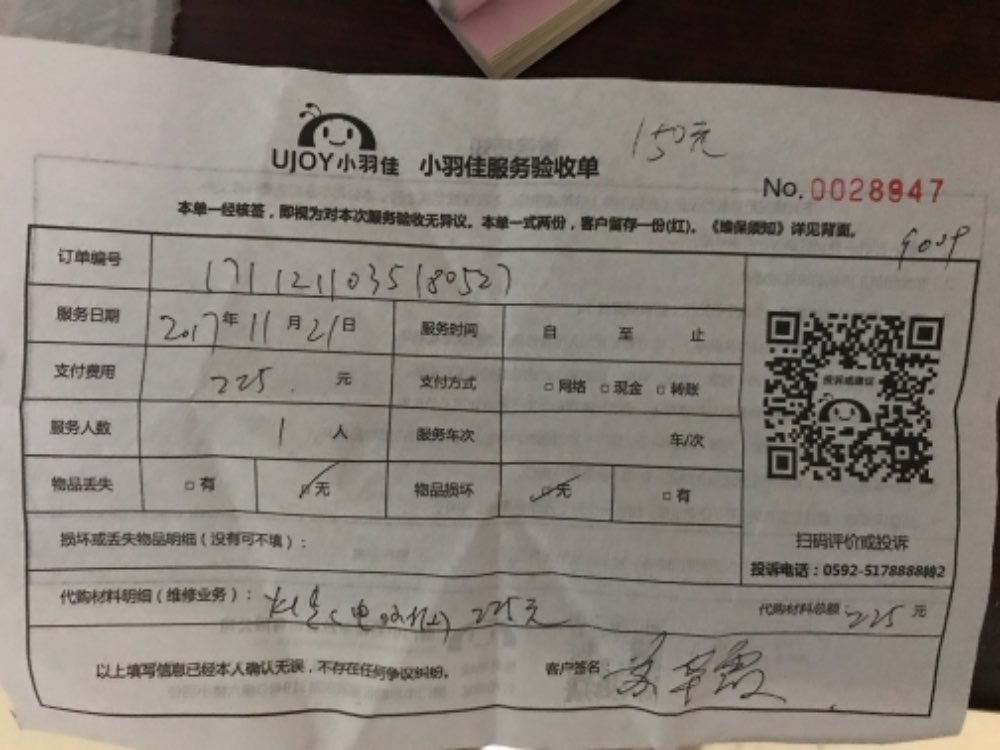 150元
UJOY小羽佳 小羽佳服务验收单
No. 0028947
本单一经核签，即视为对本次服务验收无异议。本单一式两份，客户留存一份(红)。《维保须知》详见背面。
订单编号 1711211035180527
服务日期 2017年11月21日 服务时间 自 至 止
支付费用 225. 元 支付方式 □网络 □现金 □转账
投诉或建议
服务人数 1 人 服务车次 车/次
物品丢失 □有 ☑无 物品损坏 ☑无 □有
损坏或丢失物品明细（没有可不填）：
扫码评价或投诉
投诉电话：0592-5178888转2
代购材料明细（维修业务）： 225元 代购材料总额：225 元
以上填写信息已经本人确认无误，不存在任何争议纠纷。 客户签名：